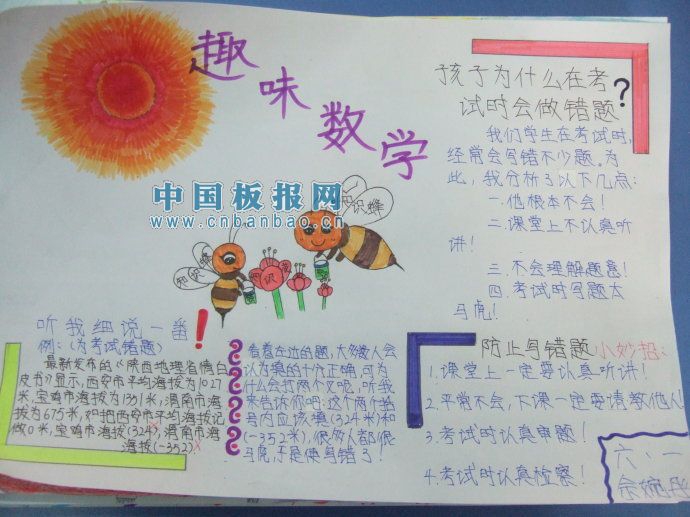 趣味数学
孩子为什么在考
试时会做错题?
我们学生在考试时,
经常会写错不少题。为
此,我分析了以下几点:
一.他根本不会!
二.课堂上不认真听
讲!
三.不会理解题意!
四.考试时写题太
马虎!
中国板报网
www.cnbanbao.cn
知识蜂
知识蜂
知识
听我细说一番!
例:(为考试错题)
最新发布的《陕西地理省情白
皮书》显示,西安市平均海拔为1027
米,宝鸡市海拔为1351米,渭南市海
拔为675米,如把西安市平均海拔记
做0米,宝鸡市海拔(324),渭南市海
海拔(-352)
看看左边的题,大多数人会
认为填的十分正确,可为
什么会打两个叉呢,听我
来告诉你吧:这个两个括
号内应该填(324米)和
(-352米),很多人都很
马虎,于是便写错了!
防止写错题小妙招:
1.课堂上一定要认真听讲!
2.平常不会,下课一定要请教他人
3.考试时认真审题!
4.考试时认真检察!
六.一
余婉